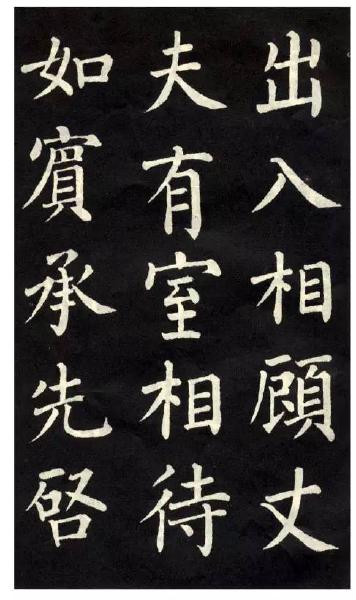 出入相顧丈
夫有室相待
如賓承先啓